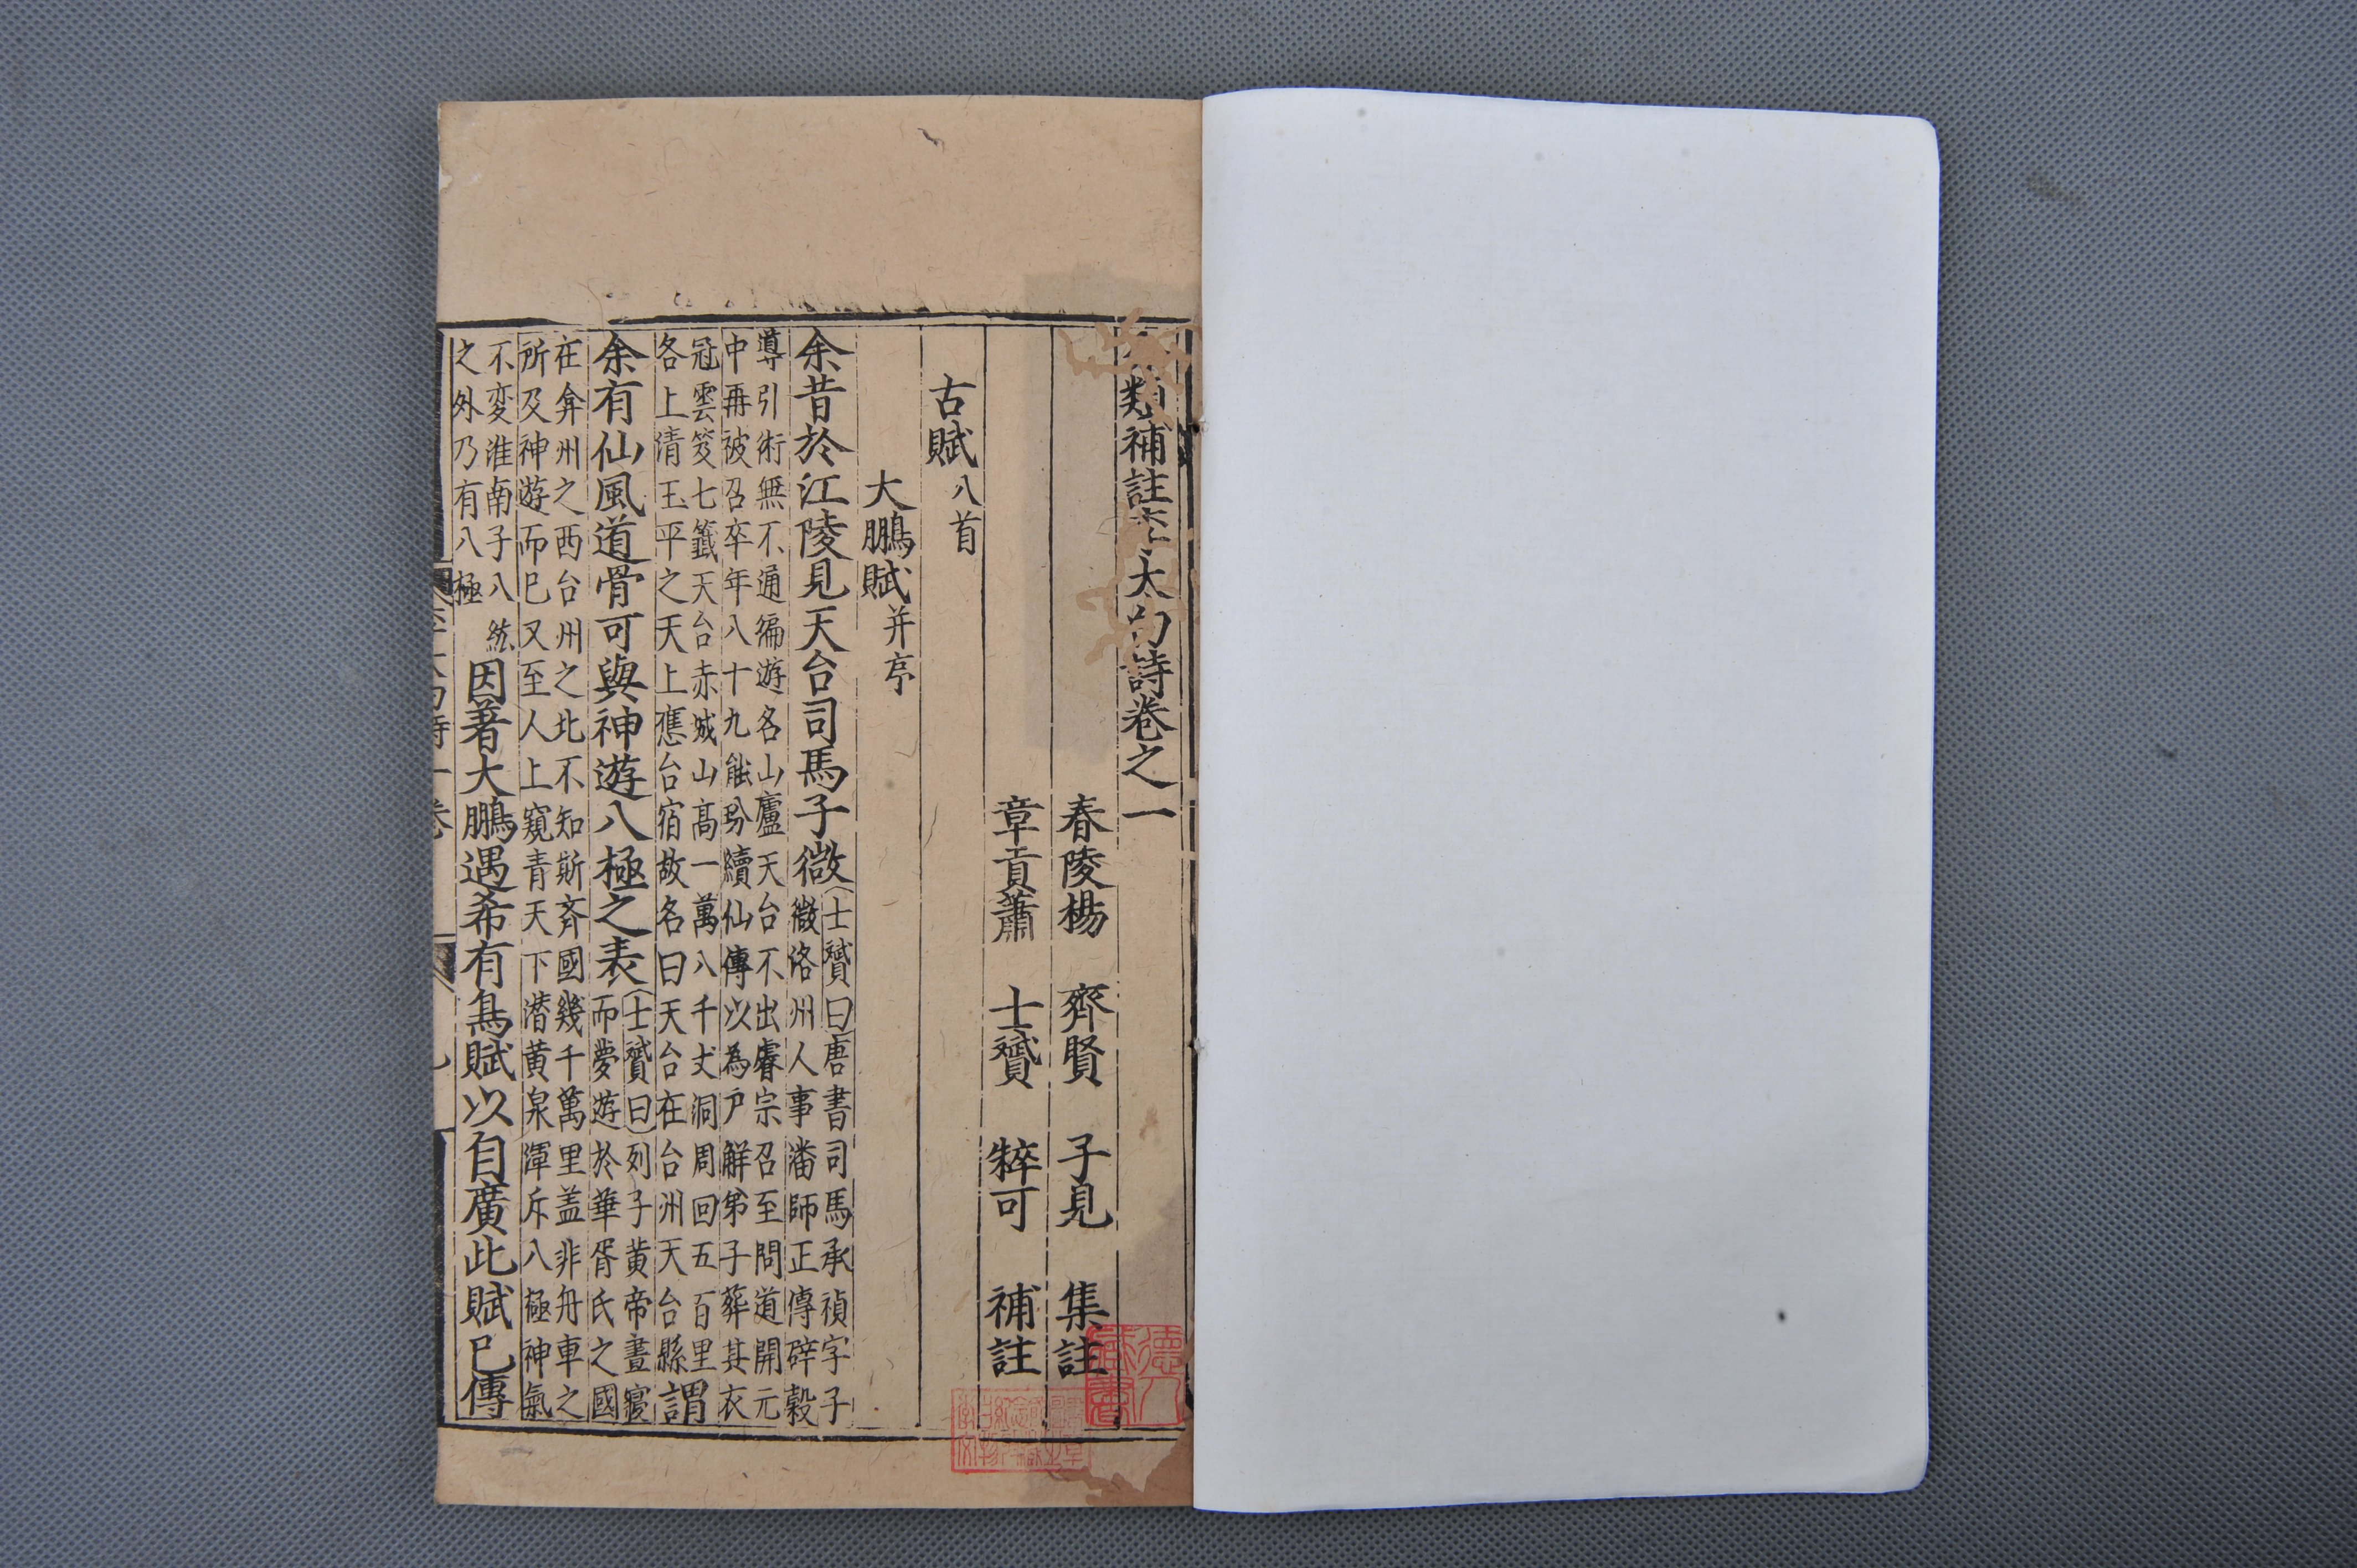 類補註李太白詩卷之一
春陵楊 齊賢 子見 集註
章貢蕭 士贇 粹可 補註
古賦八首
大鵬賦并序
余昔於江陵見天台司馬子微(士贇曰)唐書司馬承禎字子
微洛州人事潘師正傳辟穀
導引術無不通徧遊名山廬天台不出睿宗召至問道開元
中再被召卒年八十九能琴續仙傳以為尸解弟子葬其衣
冠雲笈七籤天台赤城山高一萬八千丈洞周回五百里
名上清玉平之天上應台宿故名曰天台在台州天台縣謂
余有仙風道骨可與神遊八極之表(士贇曰)列子黃帝晝寢
而夢遊於華胥氏之國
在弇州之西台州之北不知斯齊國幾千萬里盖非舟車之
所及神遊而巳又至人上窺青天下潜黄泉渾斥八極神氣
不変淮南子八紘
之外乃有八極
因著大鵬遇希有鳥賦以自廣此賦巳傳
德
藏書